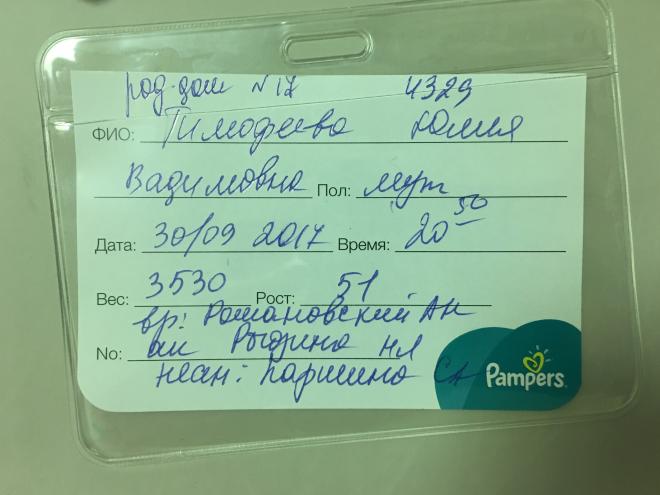 род. дом №17 4329
ФИО: Тимофеева Юлия
Вадимовна Пол: муж
Дата: 30/09 2017 Время: 20 50
Вес: 3530 Рост: 51
вр: Романовский АН
No: ак Рыдина НЛ
неон: Паршина СА
Pampers